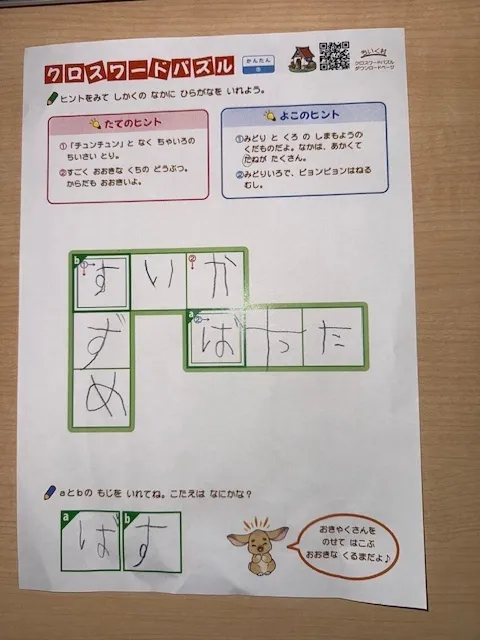 クロスワードパズル
かんたん
ちいくみ
クロスワードパズル
ダウンロードページ
ヒントをみて しかくの なかに ひらがなを いれよう。
たてのヒント
①「チュンチュン」と なく ちゃいろの
ちいさい とり。
②すごく おおきな くちの どうぶつ。
からだも おおきいよ。
よこのヒント
①みどり と くろ の しまもようの
くだものだよ。なかは、あかくて
たねが たくさん。
②みどりいろで、ピョンピョンはねる
むし。
b ① す い ② か
ず a ② ば っ た
め
aとbの もじを いれてね。こたえは なにかな?
a ば b す
おきゃくさんを
のせて はこぶ
おおきな くるまだよ♪